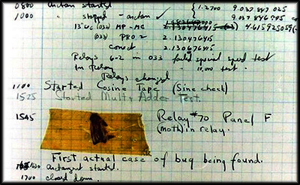 0800 started 1.2700 9.037 847 025
1000 " stopped - 9.037 846 995
MP-MC
033 PRO 2 2.130476415
2.130676415
Relays 6-2 in 033 failed special speed test
in Relay 10,000 test
Relays changed
1100 Started Cosine Tape (Sine check)
1525 Started Multy Adder Test.
1545 Relay #70 Panel F
(moth) in relay.
First actual case of bug being found.
started.
1700 closed down.